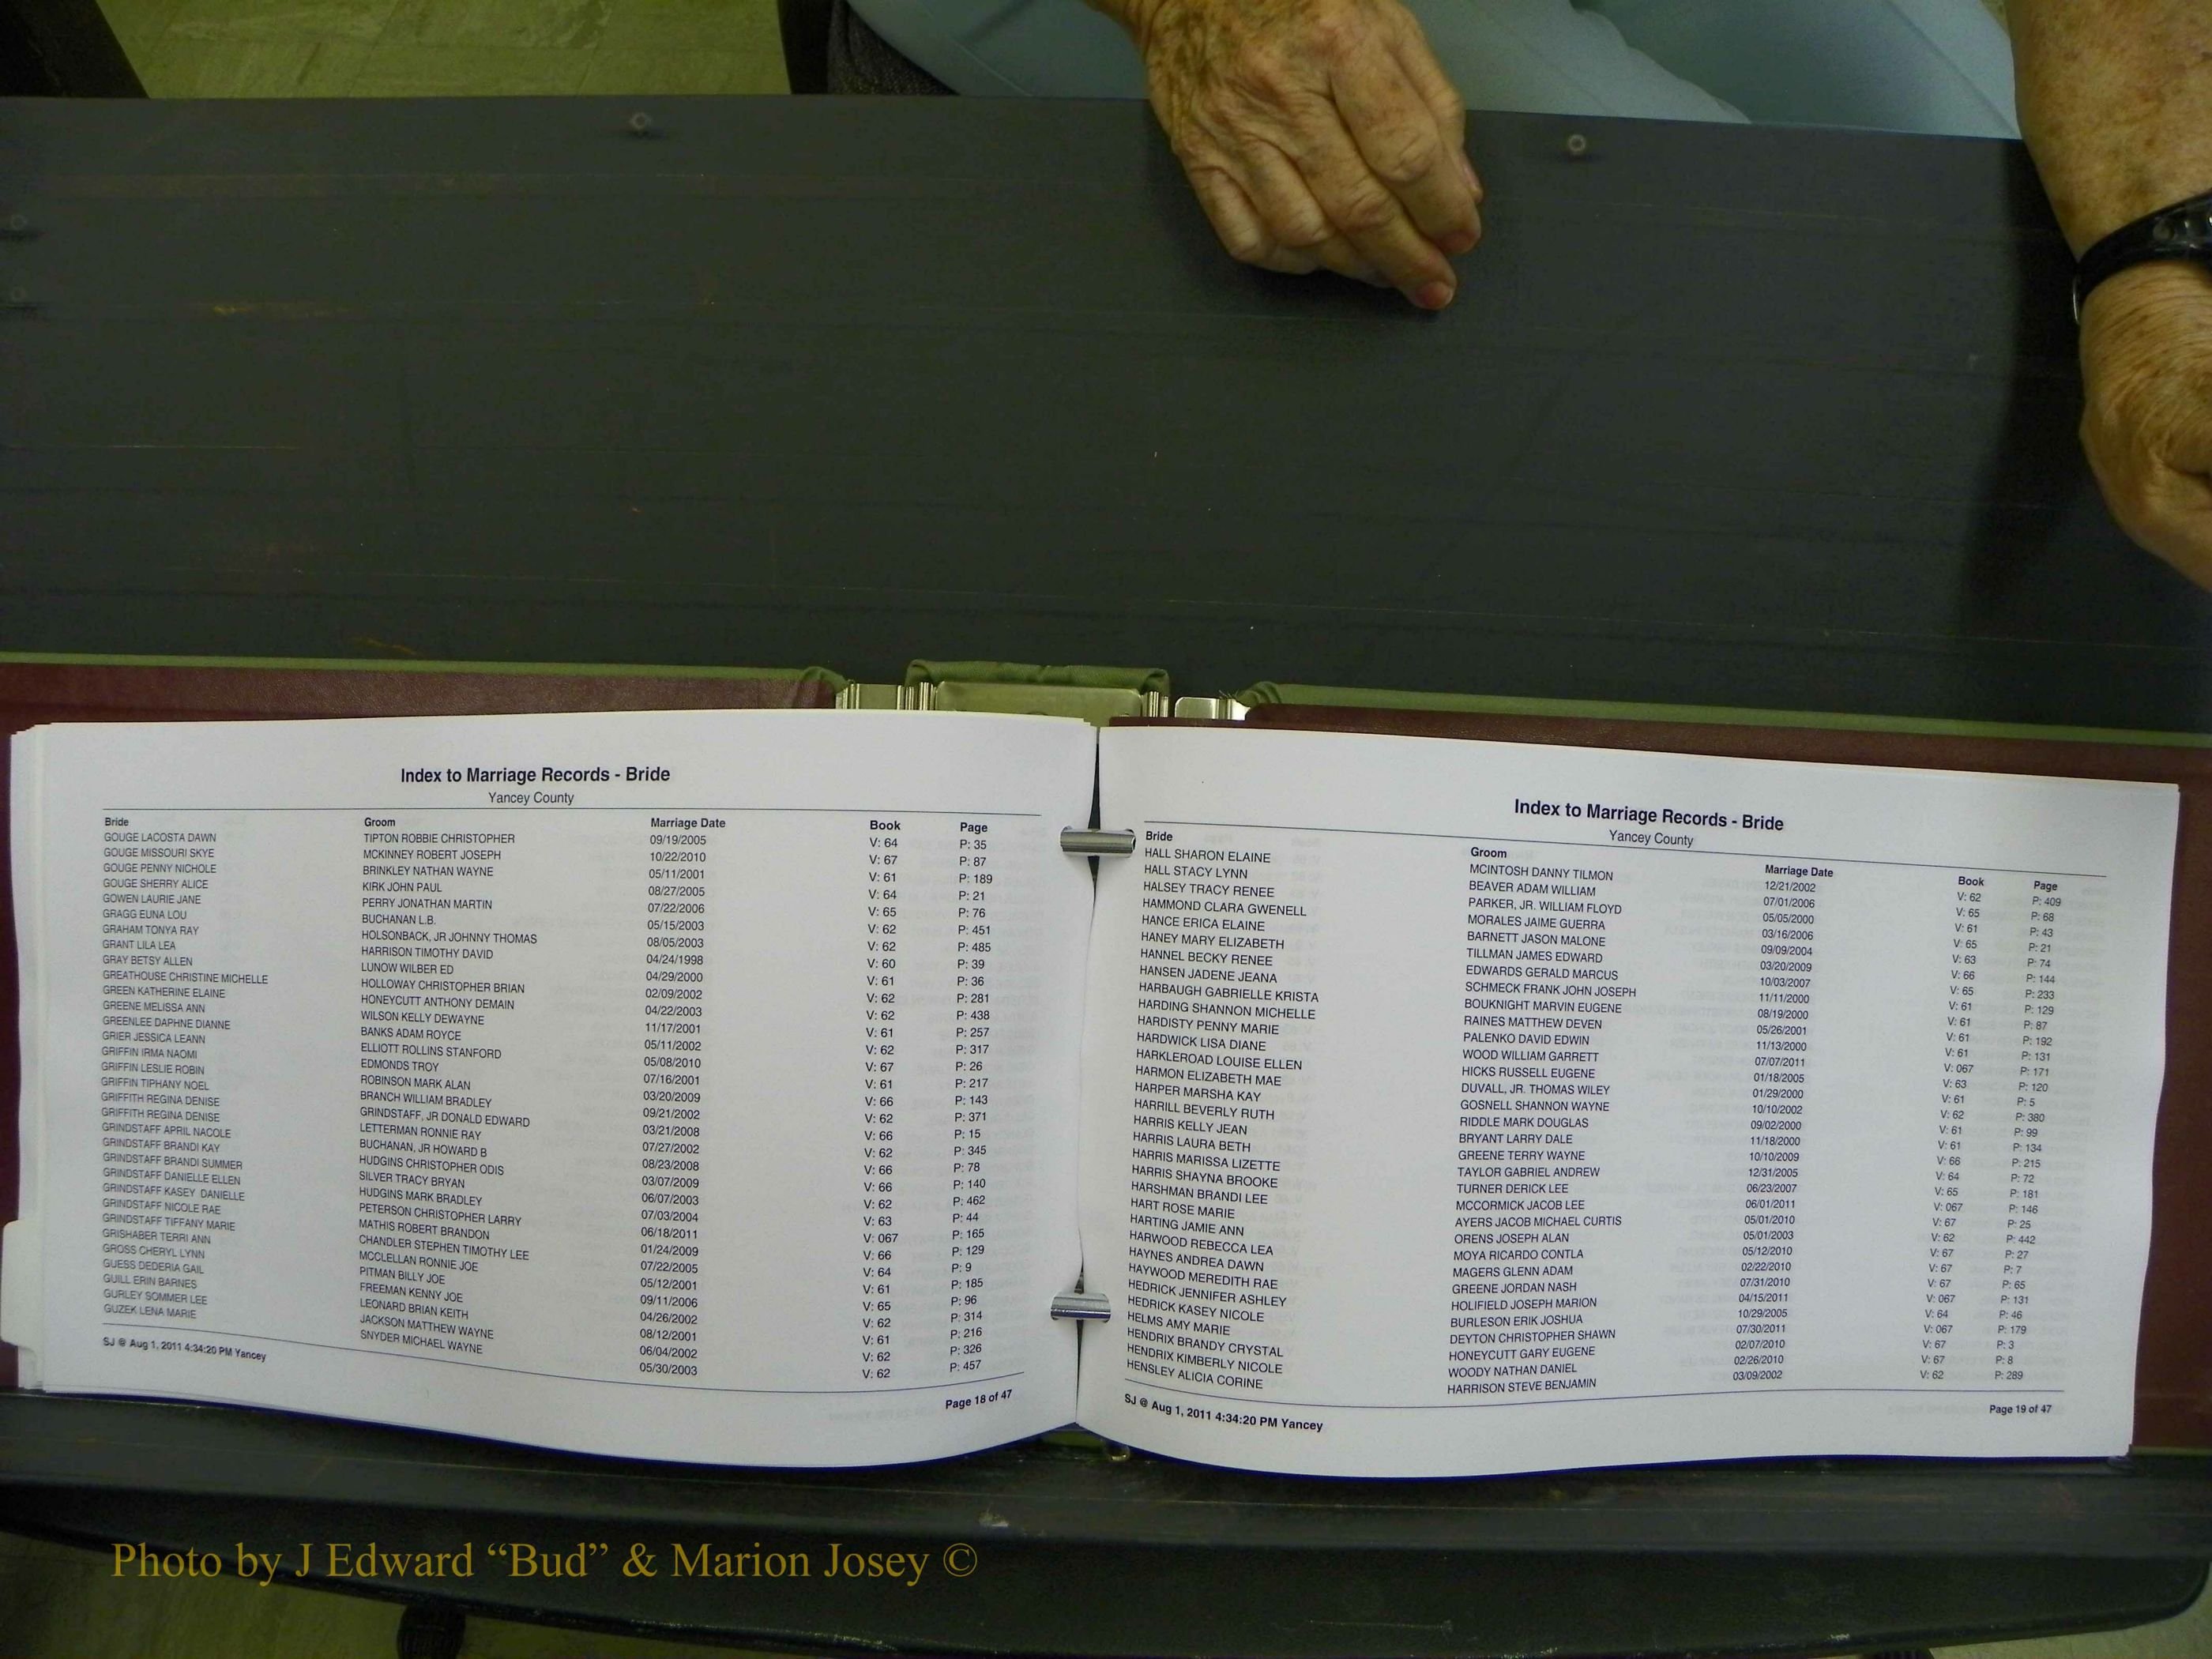 Index to Marriage Records - Bride
Yancey County
Bride Groom Marriage Date Book Page
GOUGE LACOSTA DAWN TIPTON ROBBIE CHRISTOPHER 09/19/2005 V: 64 P: 35
GOUGE MISSOURI SKYE MCKINNEY ROBERT JOSEPH 10/22/2010 V: 67 P: 87
GOUGE PENNY NICHOLE BRINKLEY NATHAN WAYNE 05/11/2001 V: 61 P: 189
GOUGE SHERRY ALICE KIRK JOHN PAUL 08/27/2005 V: 64 P: 21
GOWEN LAURIE JANE PERRY JONATHAN MARTIN 07/22/2006 V: 65 P: 76
GRAGG EUNA LOU BUCHANAN L.B. 05/15/2003 V: 62 P: 451
GRAHAM TONYA RAY HOLSONBACK, JR JOHNNY THOMAS 08/05/2003 V: 62 P: 485
GRANT LILA LEA HARRISON TIMOTHY DAVID 04/24/1998 V: 60 P: 39
GRAY BETSY ALLEN LUNOW WILBER ED 04/29/2000 V: 61 P: 36
GREATHOUSE CHRISTINE MICHELLE HOLLOWAY CHRISTOPHER BRIAN 02/09/2002 V: 62 P: 281
GREEN KATHERINE ELAINE HONEYCUTT ANTHONY DEMAIN 04/22/2003 V: 62 P: 438
GREENE MELISSA ANN WILSON KELLY DEWAYNE 11/17/2001 V: 61 P: 257
GREENLEE DAPHNE DIANNE BANKS ADAM ROYCE 05/11/2002 V: 62 P: 317
GRIER JESSICA LEANN ELLIOTT ROLLINS STANFORD 05/08/2010 V: 67 P: 26
GRIFFIN IRMA NAOMI EDMONDS TROY 07/16/2001 V: 61 P: 217
GRIFFIN LESLIE ROBIN ROBINSON MARK ALAN 03/20/2009 V: 66 P: 143
GRIFFIN TIPHANY NOEL BRANCH WILLIAM BRADLEY 09/21/2002 V: 62 P: 371
GRIFFITH REGINA DENISE GRINDSTAFF, JR DONALD EDWARD 03/21/2008 V: 66 P: 15
GRIFFITH REGINA DENISE LETTERMAN RONNIE RAY 07/27/2002 V: 62 P: 345
GRINDSTAFF APRIL NACOLE BUCHANAN, JR HOWARD B 08/23/2008 V: 66 P: 78
GRINDSTAFF BRANDI KAY HUDGINS CHRISTOPHER ODIS 03/07/2009 V: 66 P: 140
GRINDSTAFF BRANDI SUMMER SILVER TRACY BRYAN 06/07/2003 V: 62 P: 462
GRINDSTAFF DANIELLE ELLEN HUDGINS MARK BRADLEY 07/03/2004 V: 63 P: 44
GRINDSTAFF KASEY DANIELLE PETERSON CHRISTOPHER LARRY 06/18/2011 V: 067 P: 165
GRINDSTAFF NICOLE RAE MATHIS ROBERT BRANDON 01/24/2009 V: 66 P: 129
GRINDSTAFF TIFFANY MARIE CHANDLER STEPHEN TIMOTHY LEE 07/22/2005 V: 64 P: 9
GRISHABER TERRI ANN MCCLELLAN RONNIE JOE 05/12/2001 V: 61 P: 185
GROSS CHERYL LYNN PITMAN BILLY JOE 09/11/2006 V: 65 P: 96
GUESS DEDERIA GAIL FREEMAN KENNY JOE 04/26/2002 V: 62 P: 314
GUILL ERIN BARNES LEONARD BRIAN KEITH 08/12/2001 V: 61 P: 216
GURLEY SOMMER LEE JACKSON MATTHEW WAYNE 06/04/2002 V: 62 P: 326
GUZEK LENA MARIE SNYDER MICHAEL WAYNE 05/30/2003 V: 62 P: 457
SJ @ Aug 1, 2011 4:34:20 PM Yancey Page 18 of 47
Index to Marriage Records - Bride
Yancey County
Bride Groom Marriage Date Book Page
HALL SHARON ELAINE MCINTOSH DANNY TILMON 12/21/2002 V: 62 P: 409
HALL STACY LYNN BEAVER ADAM WILLIAM 07/01/2006 V: 65 P: 68
HALSEY TRACY RENEE PARKER, JR. WILLIAM FLOYD 05/05/2000 V: 61 P: 43
HAMMOND CLARA GWENELL MORALES JAIME GUERRA 03/16/2006 V: 65 P: 21
HANCE ERICA ELAINE BARNETT JASON MALONE 09/09/2004 V: 63 P: 74
HANEY MARY ELIZABETH TILLMAN JAMES EDWARD 03/20/2009 V: 66 P: 144
HANNEL BECKY RENEE EDWARDS GERALD MARCUS 10/03/2007 V: 65 P: 233
HANSEN JADENE JEANA SCHMECK FRANK JOHN JOSEPH 11/11/2000 V: 61 P: 129
HARBAUGH GABRIELLE KRISTA BOUKNIGHT MARVIN EUGENE 08/19/2000 V: 61 P: 87
HARDING SHANNON MICHELLE RAINES MATTHEW DEVEN 05/26/2001 V: 61 P: 192
HARDISTY PENNY MARIE PALENKO DAVID EDWIN 11/13/2000 V: 61 P: 131
HARDWICK LISA DIANE WOOD WILLIAM GARRETT 07/07/2011 V: 067 P: 171
HARKLEROAD LOUISE ELLEN HICKS RUSSELL EUGENE 01/18/2005 V: 63 P: 120
HARMON ELIZABETH MAE DUVALL, JR. THOMAS WILEY 01/29/2000 V: 61 P: 5
HARPER MARSHA KAY GOSNELL SHANNON WAYNE 10/10/2002 V: 62 P: 380
HARRILL BEVERLY RUTH RIDDLE MARK DOUGLAS 09/02/2000 V: 61 P: 99
HARRIS KELLY JEAN BRYANT LARRY DALE 11/18/2000 V: 61 P: 134
HARRIS LAURA BETH GREENE TERRY WAYNE 10/10/2009 V: 66 P: 215
HARRIS MARISSA LIZETTE TAYLOR GABRIEL ANDREW 12/31/2005 V: 64 P: 72
HARRIS SHAYNA BROOKE TURNER DERICK LEE 06/23/2007 V: 65 P: 181
HARSHMAN BRANDI LEE MCCORMICK JACOB LEE 06/01/2011 V: 067 P: 146
HART ROSE MARIE AYERS JACOB MICHAEL CURTIS 05/01/2010 V: 67 P: 25
HARTING JAMIE ANN ORENS JOSEPH ALAN 05/01/2003 V: 62 P: 442
HARWOOD REBECCA LEA MOYA RICARDO CONTLA 05/12/2010 V: 67 P: 27
HAYNES ANDREA DAWN MAGERS GLENN ADAM 02/22/2010 V: 67 P: 7
HAYWOOD MEREDITH RAE GREENE JORDAN NASH 07/31/2010 V: 67 P: 65
HEDRICK JENNIFER ASHLEY HOLIFIELD JOSEPH MARION 04/15/2011 V: 067 P: 131
HEDRICK KASEY NICOLE BURLESON ERIK JOSHUA 10/29/2005 V: 64 P: 46
HELMS AMY MARIE DEYTON CHRISTOPHER SHAWN 07/30/2011 V: 067 P: 179
HENDRIX BRANDY CRYSTAL HONEYCUTT GARY EUGENE 02/07/2010 V: 67 P: 3
HENDRIX KIMBERLY NICOLE WOODY NATHAN DANIEL 02/26/2010 V: 67 P: 8
HENSLEY ALICIA CORINE HARRISON STEVE BENJAMIN 03/09/2002 V: 62 P: 289
SJ @ Aug 1, 2011 4:34:20 PM Yancey Page 19 of 47
Photo by J Edward “Bud” & Marion Josey ©